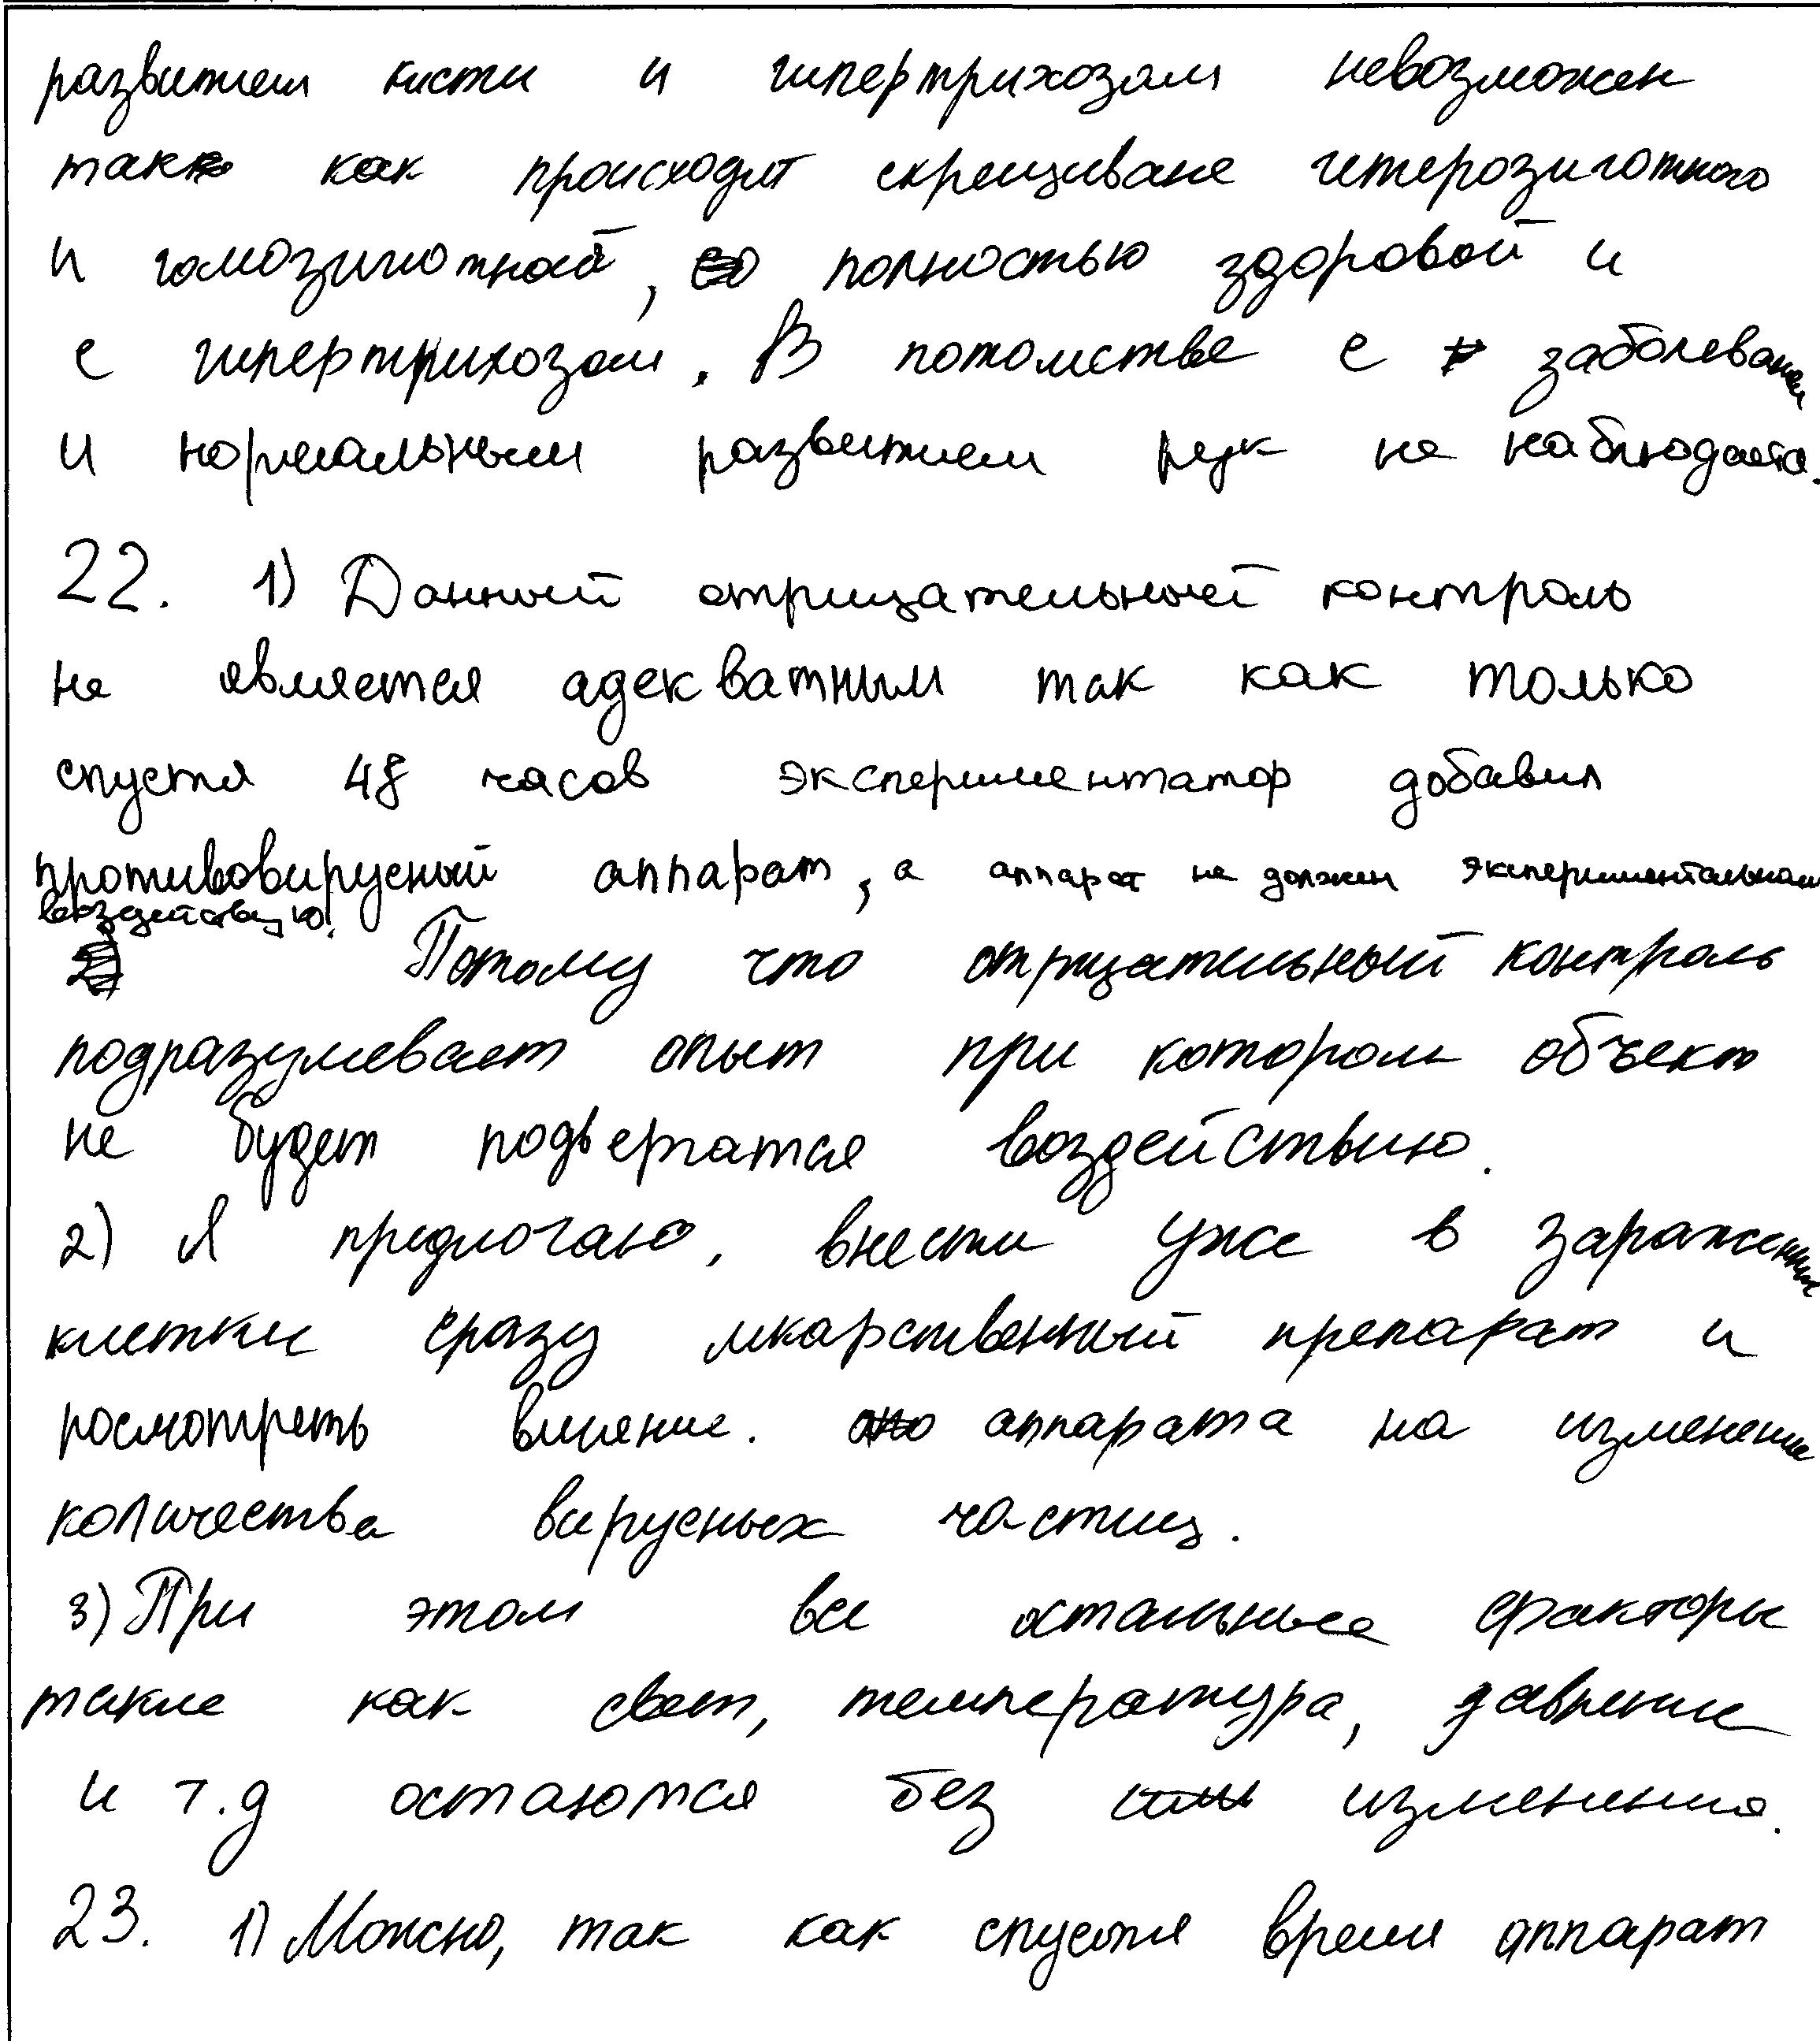 развитием кисти и гипертрихозом невозможен
так как происходит скрещиване гетерозиготного
и гомозиготной, полностью здоровой и
с гипертрихозом. В потомстве с заболеванием
и нормальным развитием рук не наблюдается.
22. 1) Данный отрицательный контроль
не является адекватным так как только
спустя 48 часов экспериментатор добавил
противовирусный аппарат, а аппарат не должен экспериментальному
воздействую.
Потому что отрицательный контроль
подразумевает опыт при котором объект
не будет подвергатся воздействию.
2) Я предлогаю, внести уже в зараженные
клетки сразу лекарственный препарат и
посмотреть влияние. аппарата на изменение
количества вирусных частиц.
3) При этом все остальные факторы
такие как свет, температура, давление
и т.д остаются без изменения.
23. 1) Можно, так как спустя время аппарат